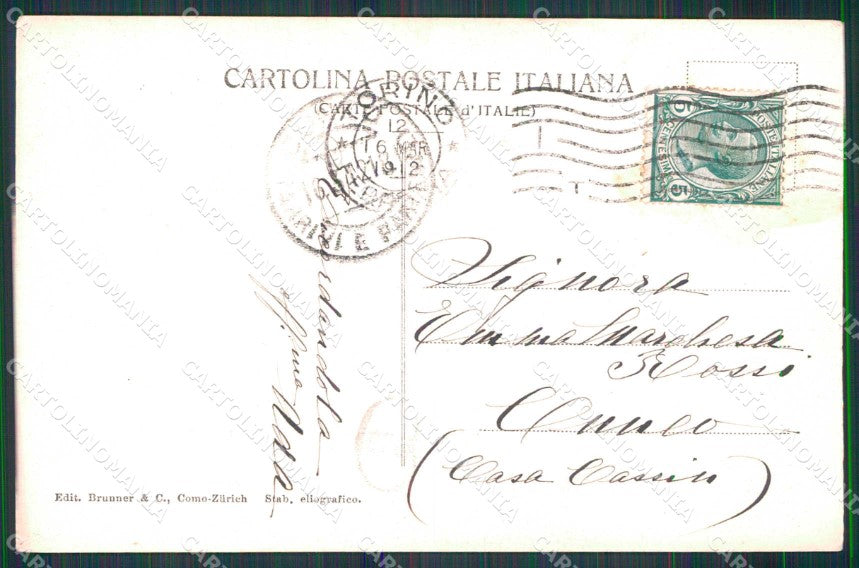 CARTOLINA POSTALE ITALIANA
(CARTE POSTALE d'ITALIE)
TORINO
12
16 MAR
12
POSTE ITALIANE
5 5
CENTESIMI
Signora
Emma Marchesa
Rossi
Cuneo
(Casa Cassin)
Edit. Brunner & C., Como-Zürich Stab. eliografico.
CARTOLINOMANIA